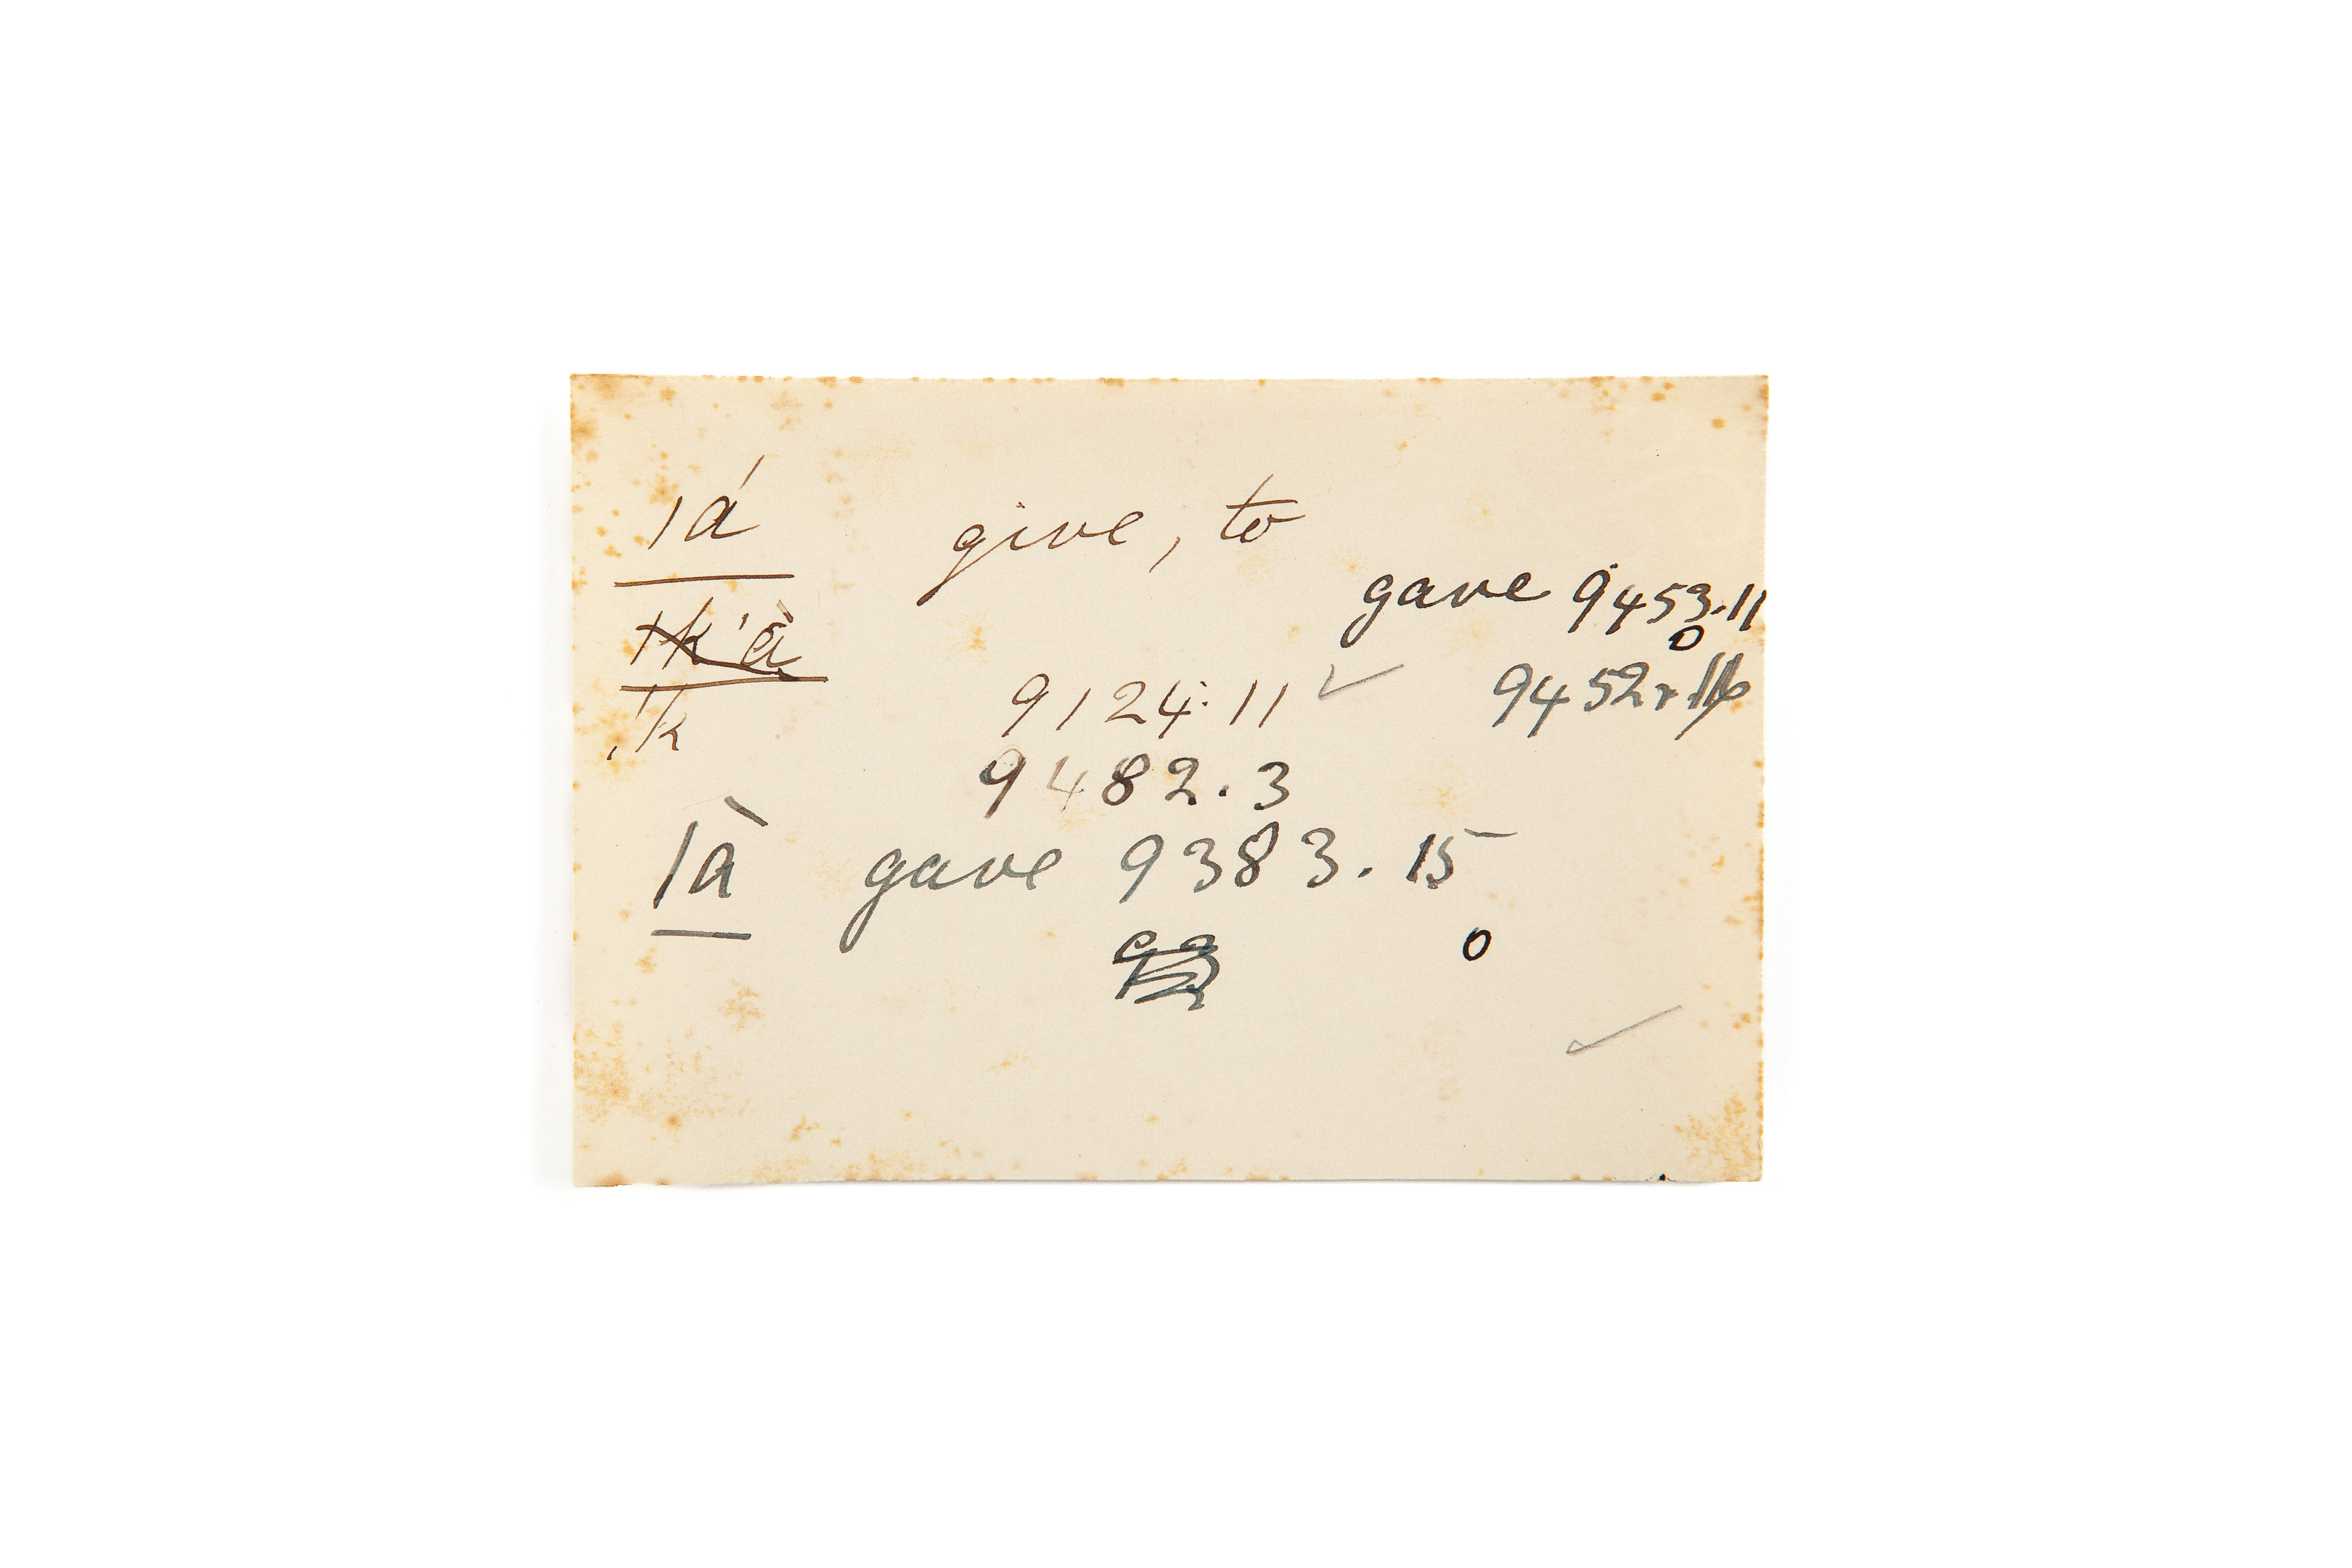 |á give, to
gave 9453.11
0
|k'à
9124.11 ✓ 9452r.
!k
9482.3
|à gave 9383.15
0
✓